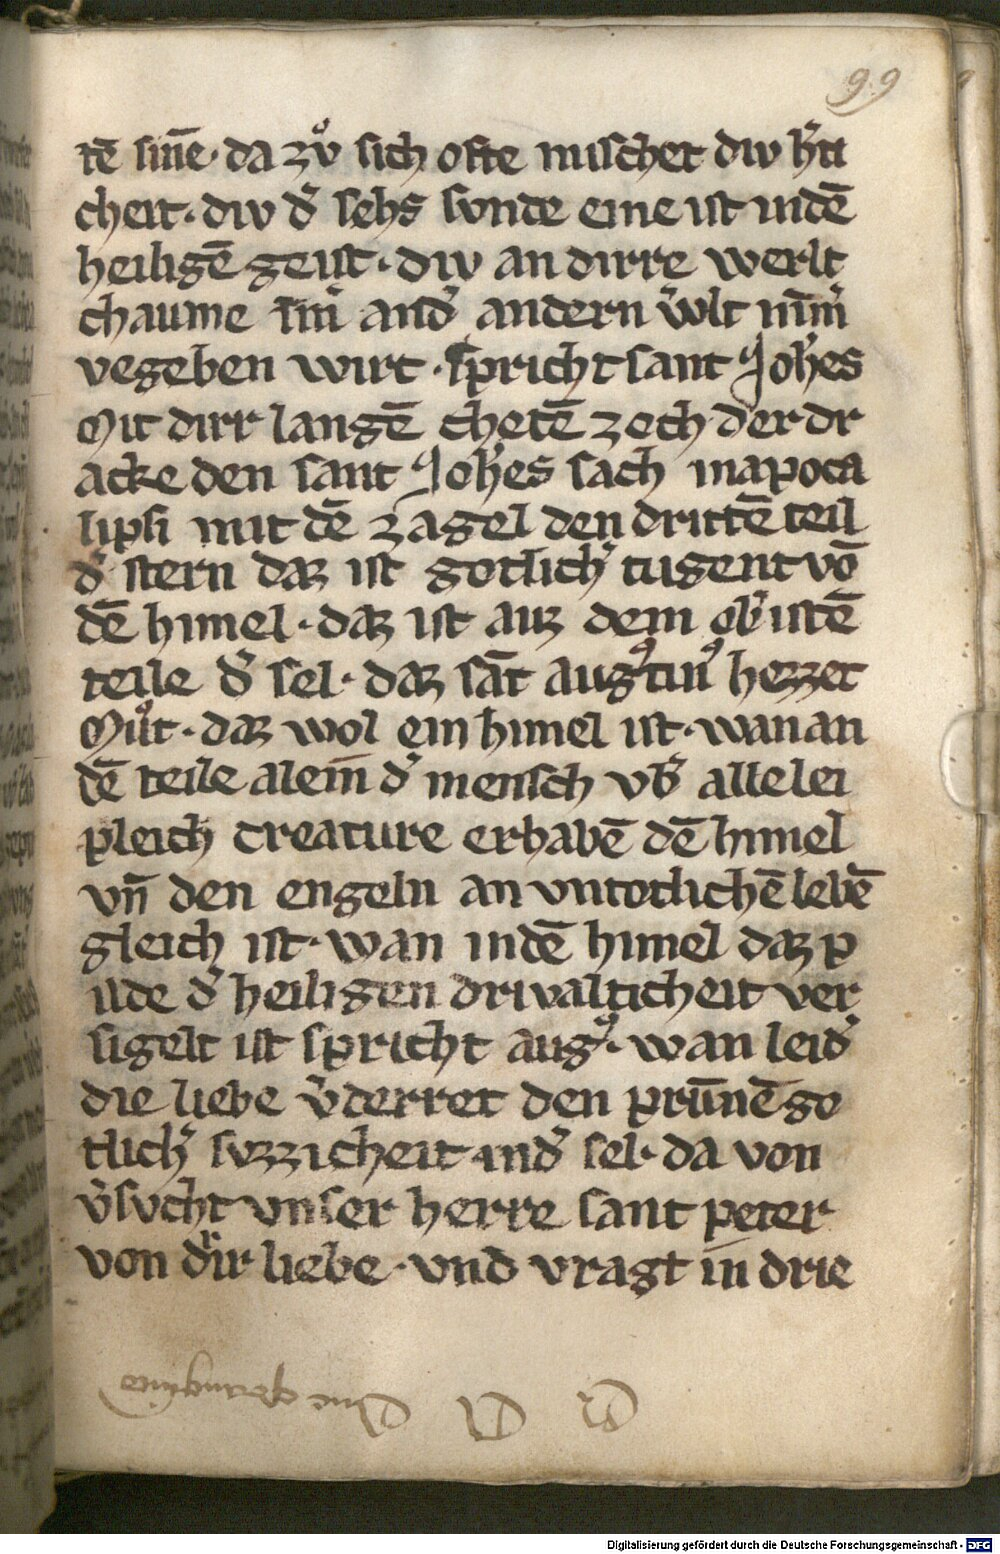 99
tē sin̄e · da zvͦ sich ofte mischet diw hʼti
cheit · diw dʼ sehs svnde eine ist indē
heiligē geist · diw an dirre werlt
chaume im̄ʼ andʼ andern vʼlt nim̄ʼ
vegeben wirt · spricht sant Johʼes
Mit dirr langē chetē zech der dr
acke den sant Johʼes sach in apoca
lipsi mit dē zagel den drittē teil
dʼ stern daz ist gotlichʼ tugent vō
dē himel · daz ist auz dem obʼistē
teile dʼ sel · daz sāt augꝰtinꝰ hezzet
Mvͦt · daz wol ein himel ist · wan an
dē teile alein̄ dʼ mensch vbʼ alle lei
pleich creature erhabē dē himel
vn̄ den engeln an vntotlichē lebē
gleich ist · wan indē himel daz p
ilde dʼ heiligen drivalticheit ver
sigelt ist spricht augꝰ · wan leidʼ
die liebe vʼderret den prūnē go
tlichʼ svzzicheit indʼ sel · da von
vʼsvcht vnser herre sant peter
von dirr liebe · vnd vragt in drie
Digitalisierung gefördert durch die Deutsche Forschungsgemeinschaft - DFG